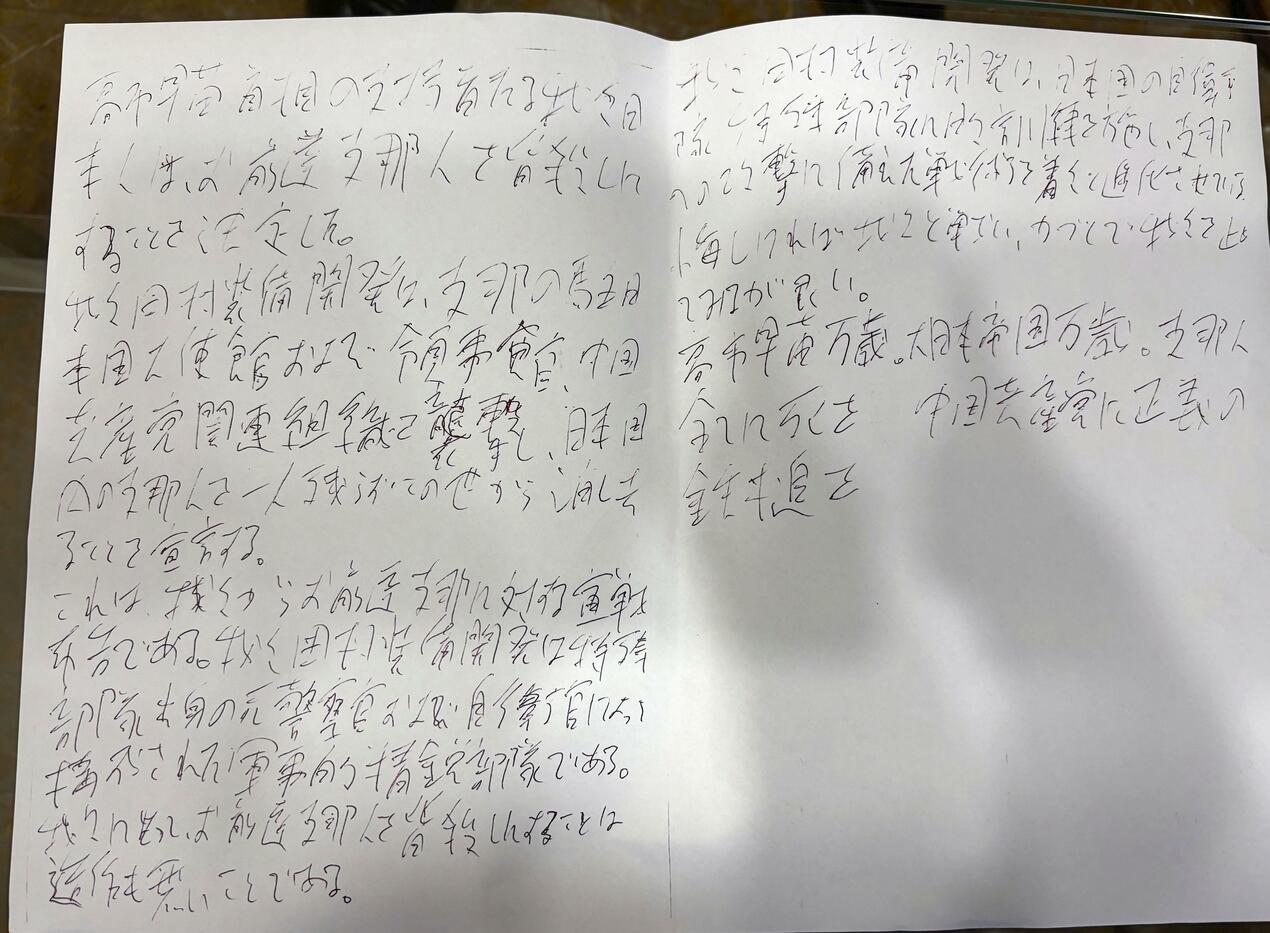 高市早苗首相の支持者たる我々日
本人は、お前達支那人を皆殺しに
することを決定した。
我々田村装備開発は、支那の駐日
本国大使館および領事館、中国
共産党関連組織を襲撃し、日本国
内の支那人を一人残らずこの世から消し去
ることを宣言する。
これは、我々からお前達支那に対する宣戦
布告である。我々田村装備開発は特殊
部隊出身の元警察官および自衛官によって
構成された軍事的精鋭部隊である。
我々にとって、お前達支那人を皆殺しにすることは
造作も無いことである。
我々田村装備開発は、日本国の自衛
隊特殊部隊に訓練を施し、支那
への攻撃に備えた戦術を着々と進化させている。
悔しければ我々と戦い、力づくで我々を止め
てみるが良い。
高市早苗万歳。大日本帝国万歳。支那人
全てに死を 中国共産党に正義の
鉄槌を